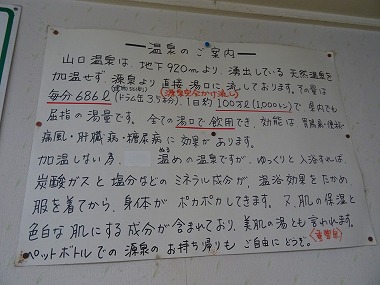 — 温泉のご案内 —
山口温泉は、地下920mより、湧出している天然温泉を
加温せず、源泉より直接湯口に流しております。その量は
(源泉完全かけ流し)
毎分686ℓ (ドラム缶3.5杯分)、1日約100万ℓ(1,000トン)で県内でも
屈指の湯量です。全ての湯口で飲用でき、効能は、胃腸系・便秘・
痛風・肝臓病・糖尿病に効果があります。
加温しない為、ぬるめの温泉ですが、ゆっくりと入浴すれば、
炭酸ガスと塩分などのミネラル成分が、温浴効果をたかめ、
服を着てから、身体がポカポカしてきます。又、肌の保湿と
色白な肌にする成分が含まれており、美肌の湯とも言われます。
(重曹泉)
ペットボトルでの源泉のお持ち帰りもご自由にどうぞ。